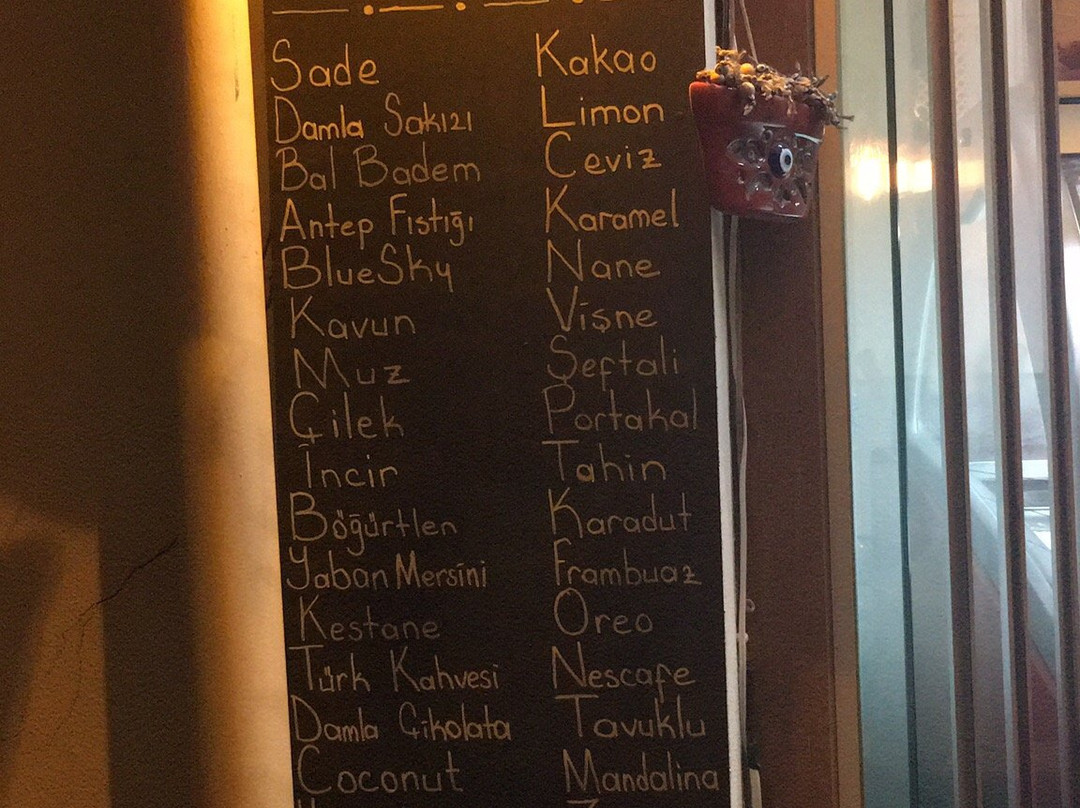 Sade
Damla Sakızı
Bal Badem
Antep Fıstığı
BlueSky
Kavun
Muz
Çilek
İncir
Böğürtlen
Yaban Mersini
Kestane
Türk Kahvesi
Damla Çikolata
Coconut
Kakao
Limon
Ceviz
Karamel
Nane
Vişne
Şeftali
Portakal
Tahin
Karadut
Frambuaz
Oreo
Nescafe
Tavuklu
Mandalina